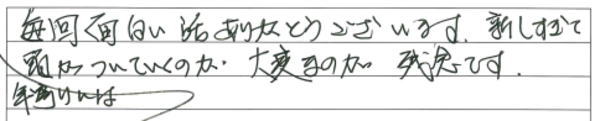 毎回面白い話ありがとうございます。新しすぎて
頭がついていくのが大変なのが残念です。